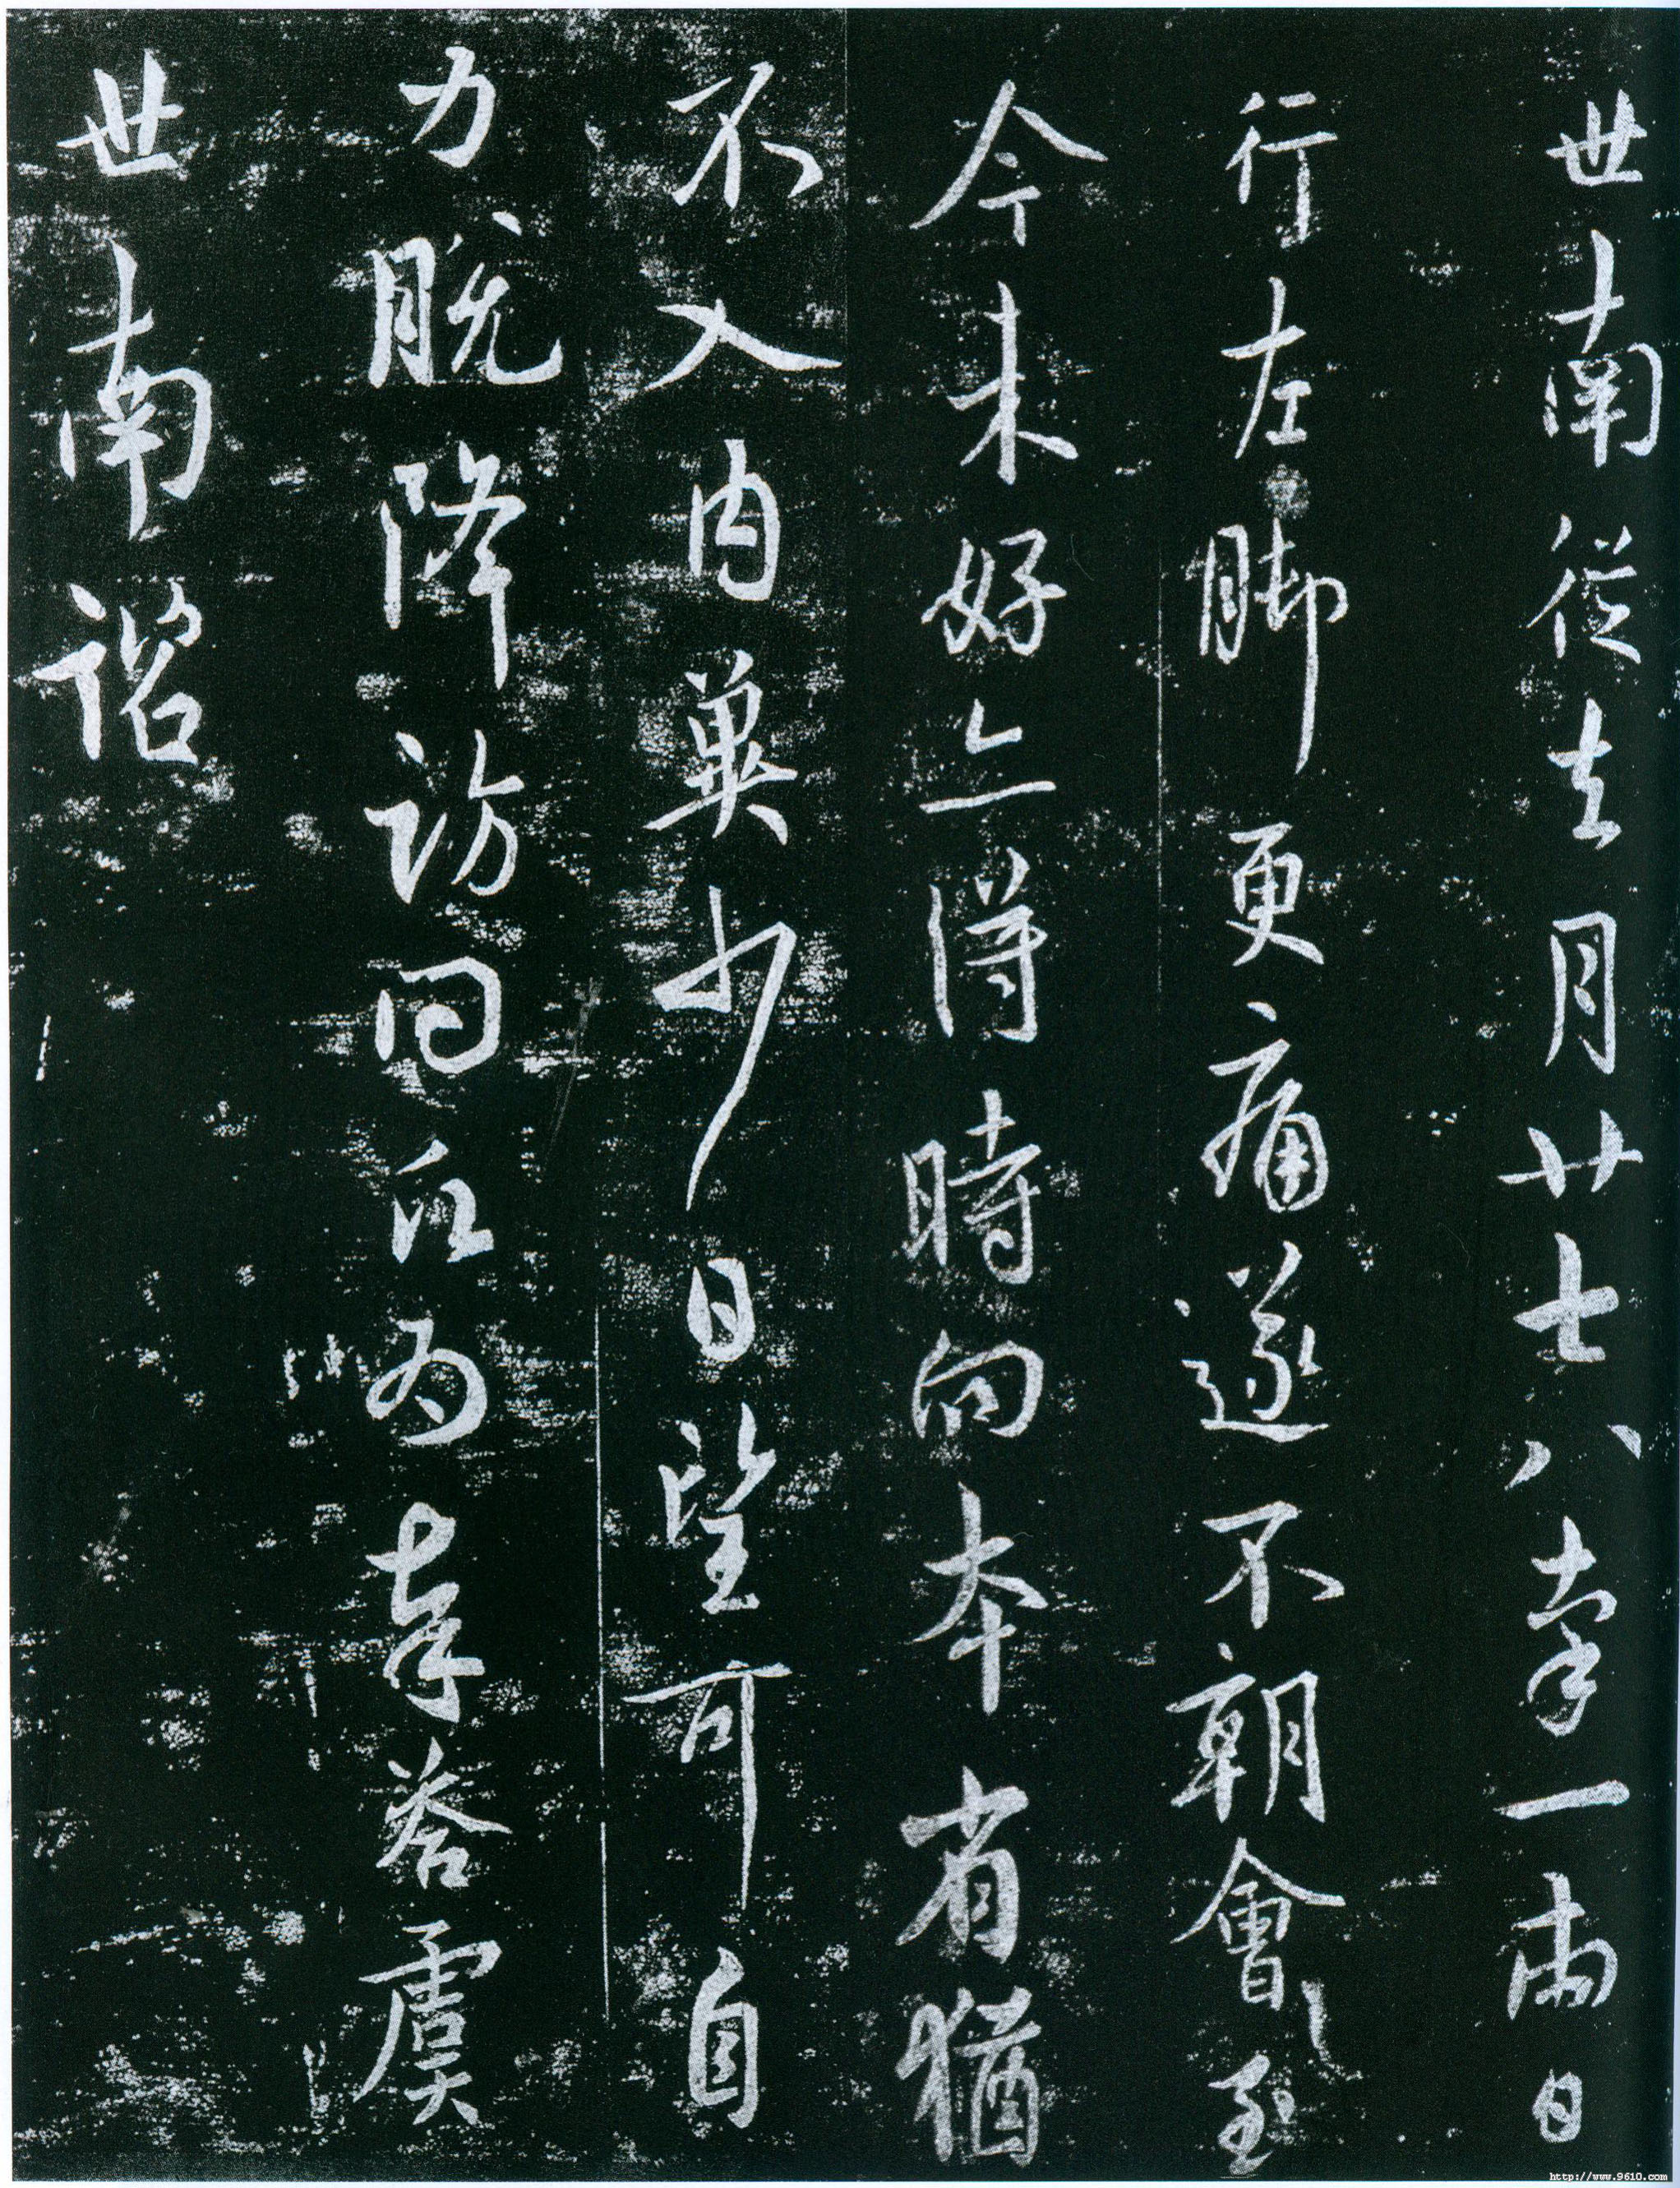 世南從去月廿七八牽一兩日
行左脚更痛遂不朝會至
今未好亦得時向本省猶
不入内冀少日望可自
力脱降訪問公為奉答虞
世南諮
http://www.9610.com